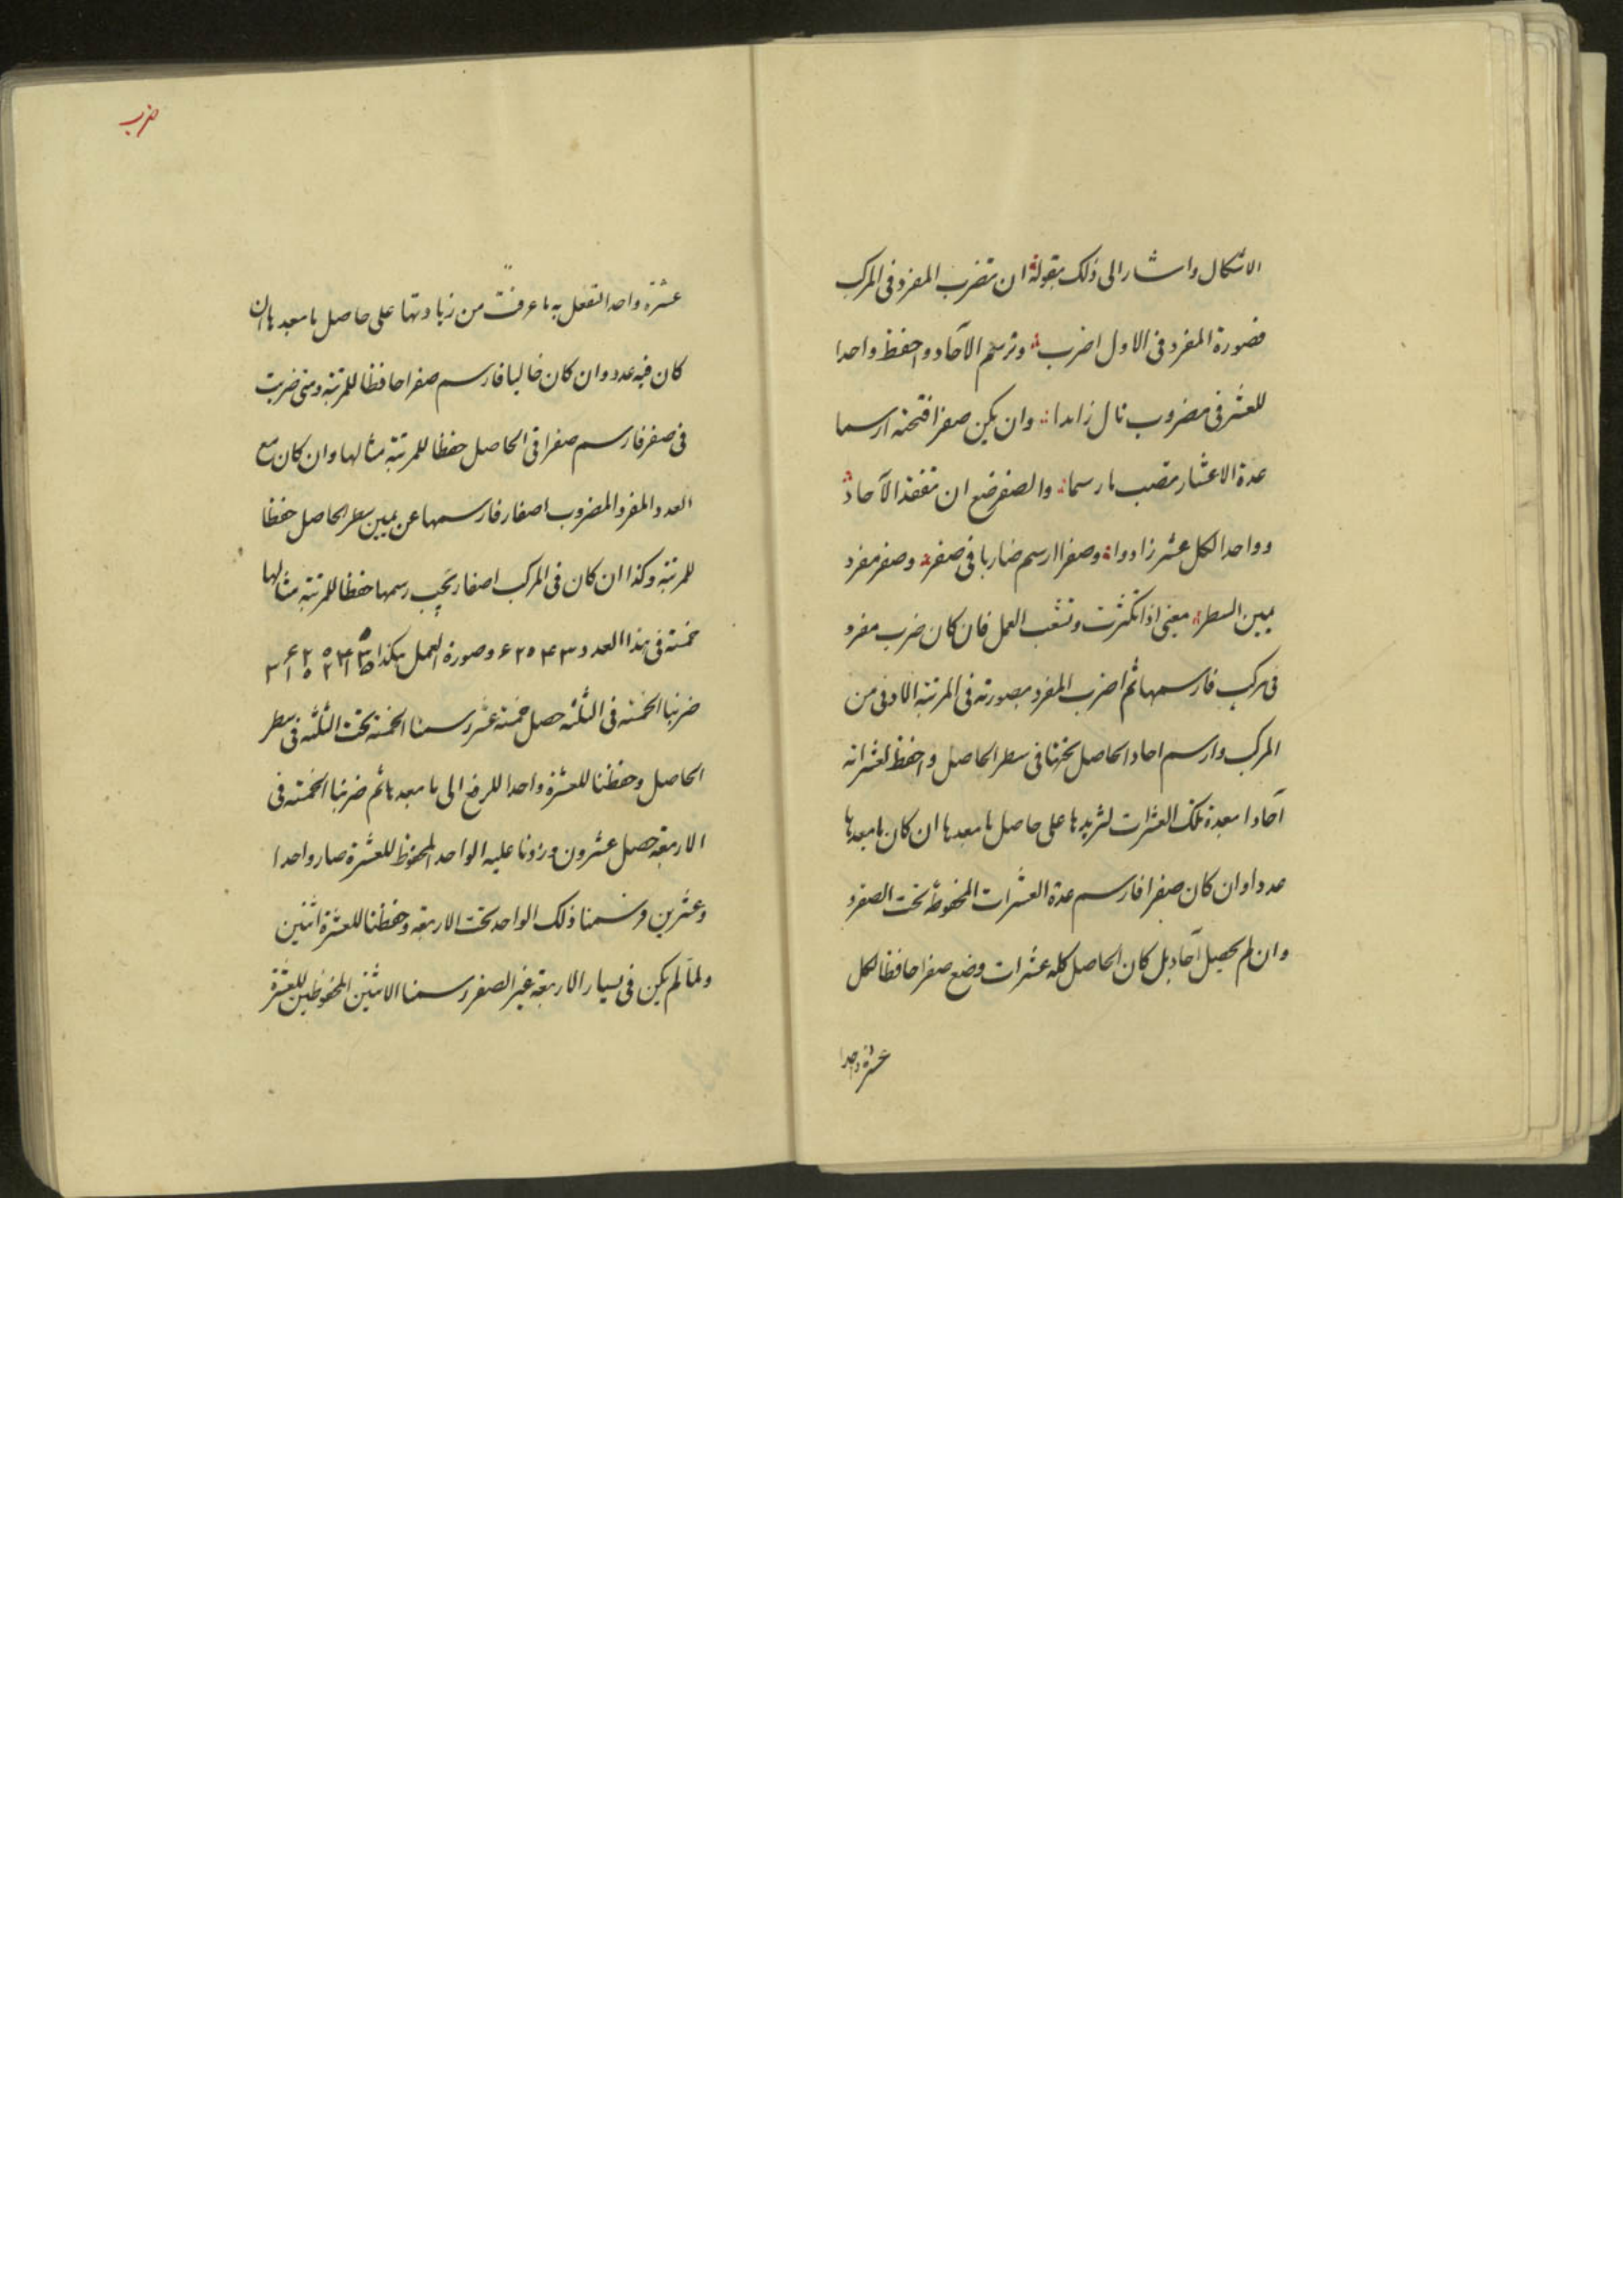 الاشكال واشار الى ذلك بقوله ان تضرب المفرد فى المركب
فصورة المفرد فى الاول اضرب وترسم الآحاد واحفظ واحدا
للعشر فى مضروب تال زايدا وان يكن صفرا فتحته ارسما
عدة الاعشار تصب ما رسما والصفر ضع ان تفقد الآحاد
وواحدا لكل عشر زادوا وصفرا ارسم ضاربا فى صفر وصفر مفرد
يمين السطر معنى اذا تكثرت وتشعب العمل فان كان ضرب مفرد
فى مركب فارسمها ثم اضرب المفرد بصورته فى المرتبة الاولى من
المركب وارسم احاد الحاصل تحتها فى سطر الحاصل واحفظ لعشراته
آحادا بعدة تلك العشرات لتزيدها على حاصل ما بعدها ان كان ما بعدها
عددا وان كان صفرا فارسم عدة العشرات المحفوظة تحت الصفر
وان لم يحصل آحاد بل كان الحاصل كله عشرات وضع صفرا حافظا لكل
عشرة واحدا
ضرب
عشرة واحدا لتفعل به ما عرفت من زيادتها على حاصل ما بعدها ان
كان فيه عدد وان كان خاليا فارسم صفرا حافظا للمرتبة ومتى ضربت
فى صفر فارسم صفرا فى الحاصل حفظا للمرتبة مثالها وان كان مع
العدد المفرد المضروب اصفار فارسمها عن يمين سطر الحاصل حفظا
للمرتبة وكذا ان كان فى المركب اصفار يجب رسمها حفظا للمرتبة مثالها
خمسة فى هذا العدد ۶۲۰۴۳ وصورة العمل هكذا
ضربنا الخمسة فى الثلثة حصل خمسة عشر رسمنا الخمسة تحت الثلثة فى سطر
الحاصل وحفظنا للعشرة واحدا للرفع الى ما بعدها ثم ضربنا الخمسة فى
الاربعة حصل عشرون وزدنا عليه الواحد المحفوظ للعشرة صار واحدا
وعشرين ورسمنا ذلك الواحد تحت الاربعة وحفظنا للعشرة اثنين
ولما لم يكن فى يسار الاربعة غير الصفر رسمنا الاثنين المحفوظين للعشرة